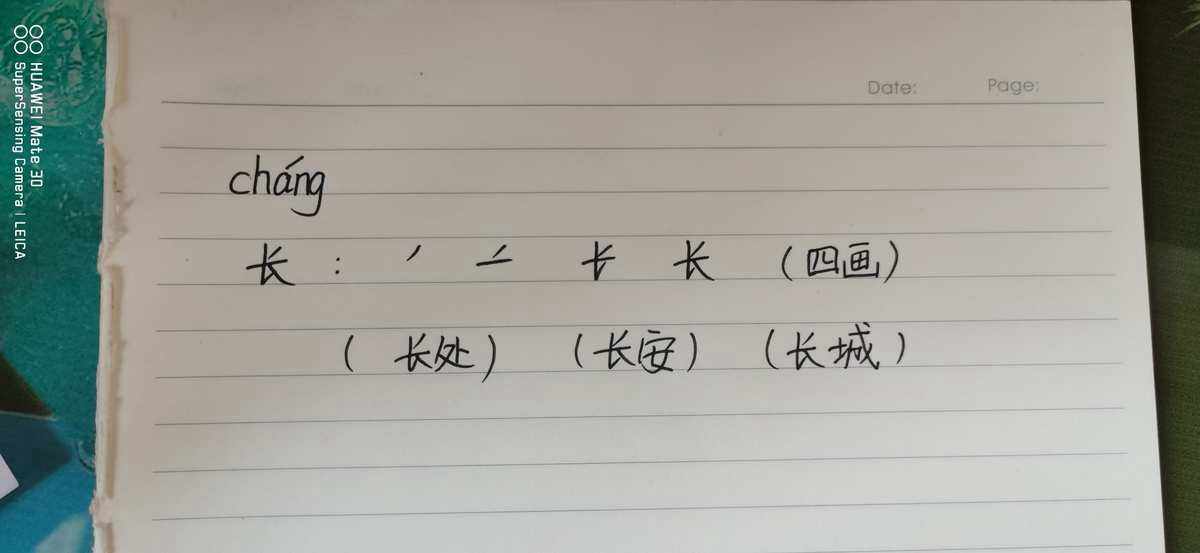 HUAWEI Mate 30
SuperSensing Camera | LEICA
Date: Page:
cháng
长 : ㇒ 𠂉 长 (四画)
(长处) (长安) (长城)